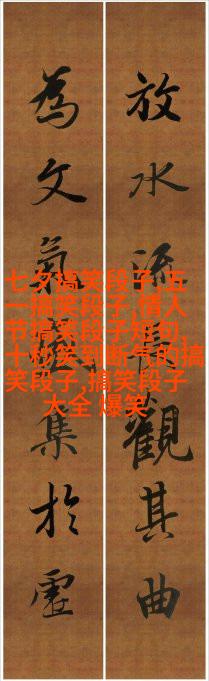 放水流觀其曲
為文氣集於虛
七夕搞笑段子,五
一搞笑段子,情人
节搞笑段子短句,
十秒笑到断气的搞
笑段子,搞笑段子
大全 爆笑